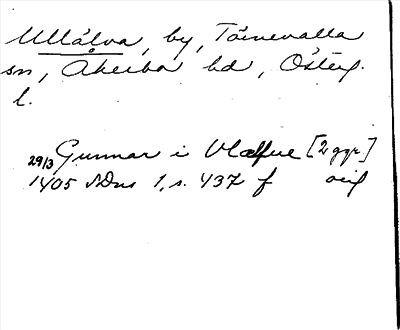 Ullälva, by, Törnevalla
sn, Åkerbo hd, Österg.
l.
29/3 Gunnar i Vlælfue [2 ggr]
1405 SDns 1, s. 437 f orig